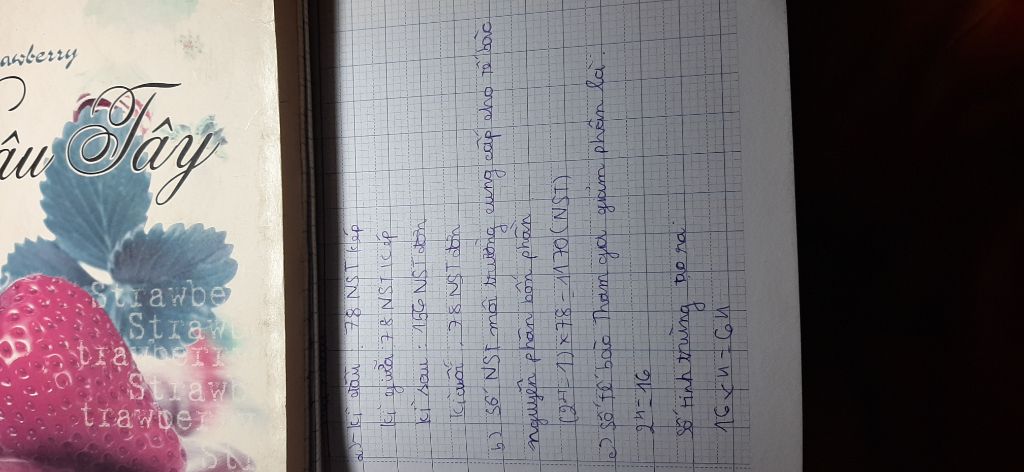 awberry
âu Tây
Strawbe
Straw
trawberr
Strawb
trawber
St
a) kì đầu : 78 NST kép
kì giữa : 78 NST kép
kì sau : 156 NST đơn
kì cuối : 78 NST đơn
b) Số NST môi trường cung cấp cho tế bào
nguyên phân bốn phần
(2⁴ - 1) x 78 = 1170 (NST)
c) Số tế bào Tham gia giảm phân là:
2⁴ = 16
Số tinh trùng tạo ra:
16 x 4 = 64